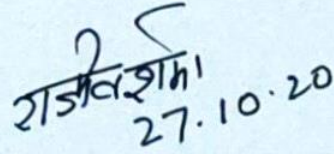 राजीव शर्मा
27.10.20